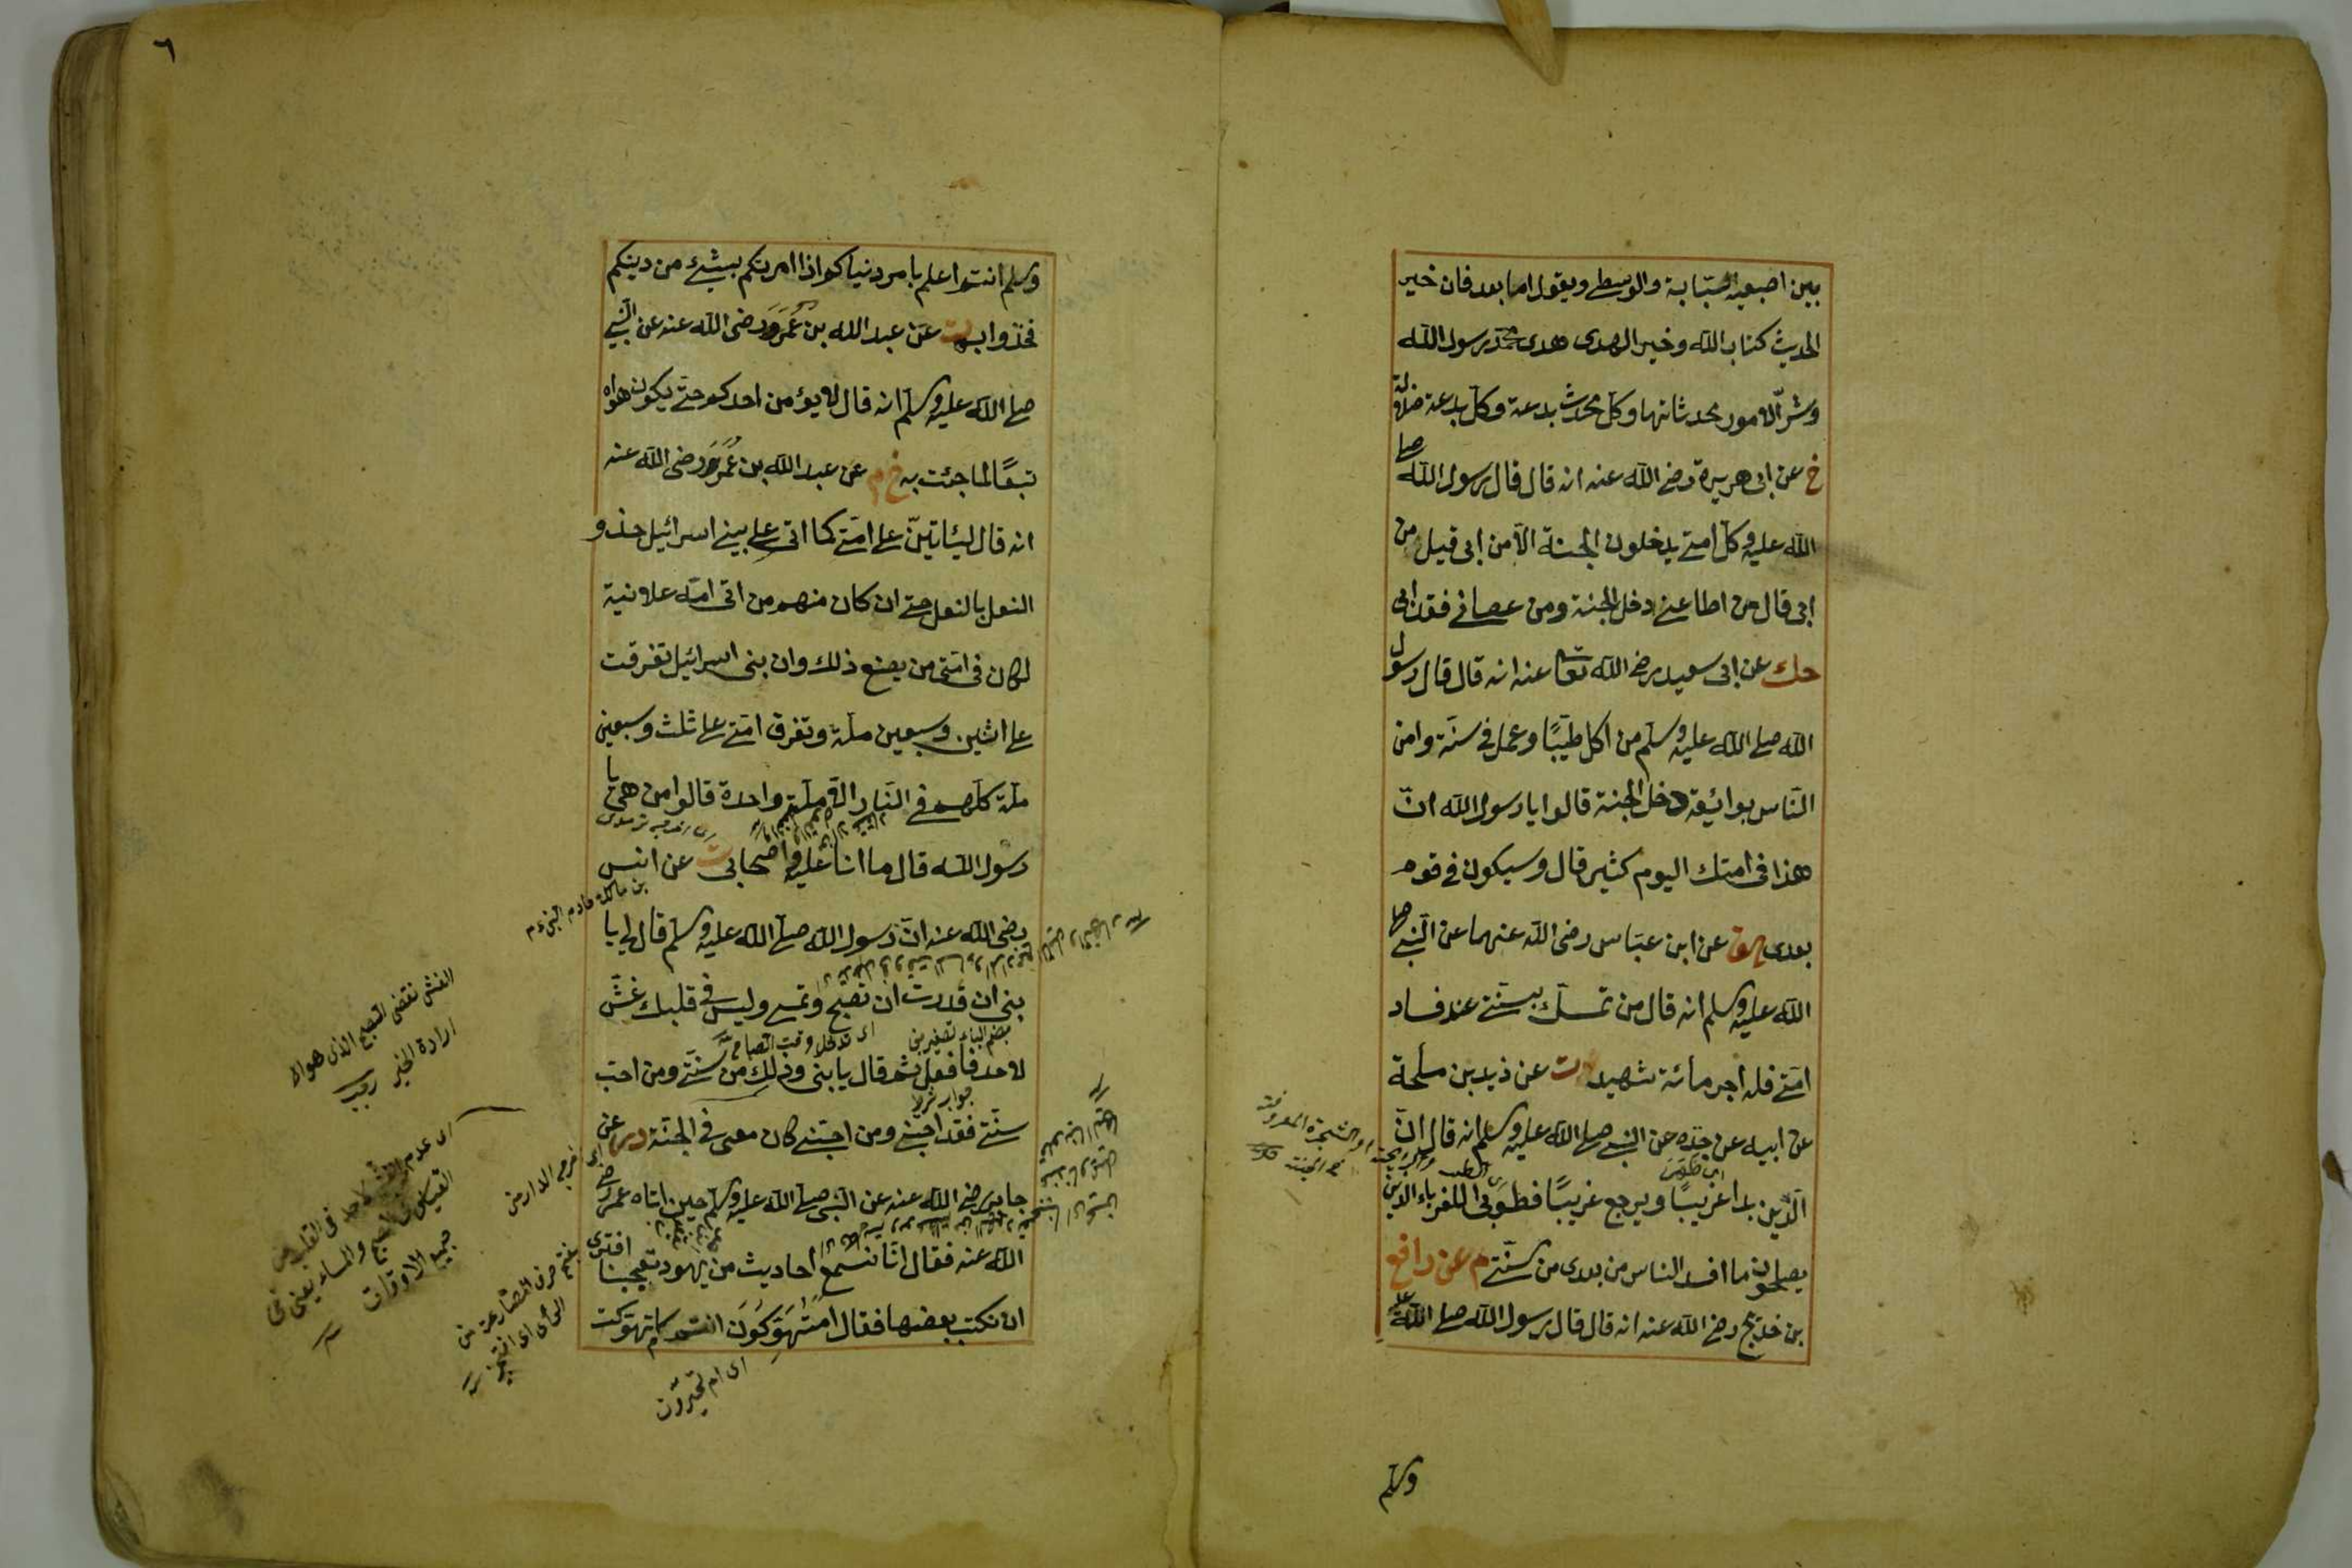 بين اصبعيه السبابة والوسطى ويقول اما بعد فان خير
الحديث كتاب الله وخير الهدى هدى محمد رسول الله
وشر الامور محدثاتها وكل محدث بدعة وكل بدعة ضلالة
خ عن ابى هريرة رضى الله عنه انه قال قال رسول الله صلى
الله عليه وسلم كل امتى يدخلون الجنة الا من ابى قيل من
ابى قال من اطاعنى دخل الجنة ومن عصانى فقد ابى
حك عن ابى سعيد رضى الله تعا عنه انه قال قال رسول
الله صلى الله عليه وسلم من اكل طيبًا وعمل فى سنة وامن
الناس بوائقه دخل الجنة قالوا يا رسول الله ان
هذا فى امتك اليوم كثير قال وسيكون فى قوم
بعدى هق عن ابن عباس رضى الله عنهما عن النبى صلى
الله عليه وسلم انه قال من تمسك بسنتى عند فساد
امتى فله اجر مائة شهيد ت عن زيد بن ملحة
عن ابيه عن جده عن النبى صلى الله عليه وسلم انه قال ان
الدين بدا غريبًا ويرجع غريبًا فطوبى للغرباء الذين
يصلحون ما افسد الناس من بعدى من سنتى م عن رافع
بن خديج رضى الله عنه انه قال قال رسول الله صلى الله عليه
وسلم
٦
وسلم انتم اعلم بامر دنياكم اذا امرتكم بشئ من دينكم
فخذوا به ت عن عبد الله بن عمرو رضى الله عنه عن النبى
صلى الله عليه وسلم انه قال لا يؤمن احدكم حتى يكون هواه
تبعًا لما جئت به خ م عن عبد الله بن عمرو رضى الله عنه
انه قال ليأتين على امتى كما اتى على بنى اسرائيل حذو
النعل بالنعل حتى ان كان منهم من اتى امه علانية
لكان فى امتى من يصنع ذلك وان بنى اسرائيل تفرقت
على اثنين وسبعين ملة وتفرق امتى على ثلث وسبعين
ملة كلهم فى النار الا ملة واحدة قالوا من هى يا
رسول الله قال ما انا عليه واصحابى ت عن انس
بن مالك خادم النبى عم
رضى الله عنه ان رسول الله صلى الله عليه وسلم قال لى يا
بنى ان قدرت ان تصبح وتمسى وليس فى قلبك غش
بضم الباء تصغير بنى
لاحد فافعل ثم قال يا بنى وذلك من سنتى ومن احب
سنتى فقد احبنى ومن احبنى كان معى فى الجنة در عن
جابر رضى الله عنه عن النبى صلى الله عليه وسلم حين اتاه عمر رضى
الله عنه فقال انا نسمع احاديث من يهود تعجبنا افترى
ان نكتب بعضها فقال امتهوكون انتم كما تهوكت
اى ام تحيرون
الغش نقض النصح الذى هو
ارادة الخير
جميع الاوقات